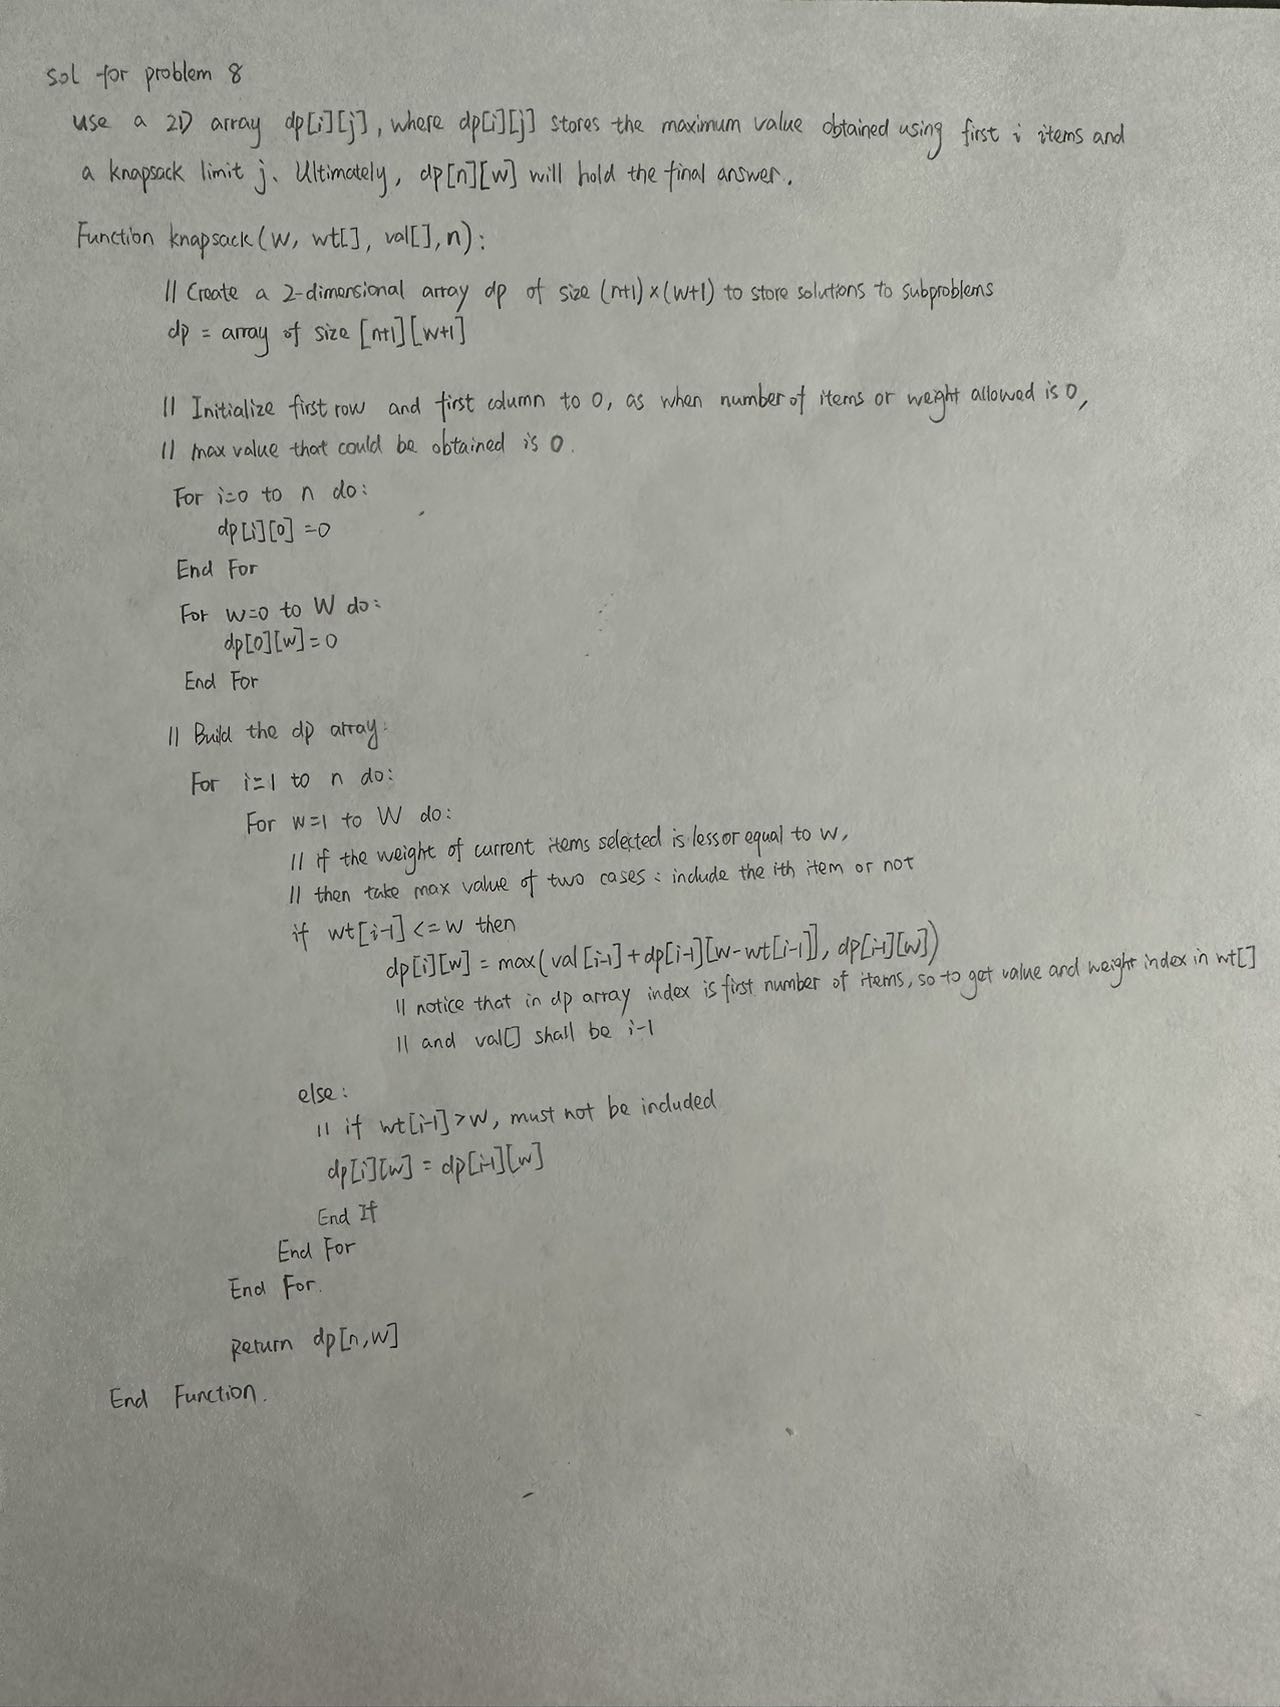 sol for problem 8
use a 2D array dp[i][j], where dp[i][j] stores the maximum value obtained using first i items and
a knapsack limit j. Ultimately, dp[n][w] will hold the final answer.
Function knapsack(W, wt[], val[], n):
// Create a 2-dimensional array dp of size (n+1)×(w+1) to store solutions to subproblems
dp = array of size [n+1][w+1]
// Initialize first row and first column to 0, as when number of items or weight allowed is 0,
// max value that could be obtained is 0.
For i=0 to n do:
dp[i][0]=0
End For
For w=0 to W do:
dp[0][w]=0
End For
// Build the dp array:
For i=1 to n do:
For w=1 to W do:
// if the weight of current items selected is less or equal to w,
// then take max value of two cases: include the ith item or not
if wt[i-1]<=w then
dp[i][w] = max(val[i-1]+dp[i-1][w-wt[i-1]], dp[i-1][w])
// notice that in dp array index is first number of items, so to get value and weight index in wt[]
// and val[] shall be i-1
else:
// if wt[i-1]>w, must not be included
dp[i][w] = dp[i-1][w]
End If
End For
End For.
Return dp[n,w]
End Function.